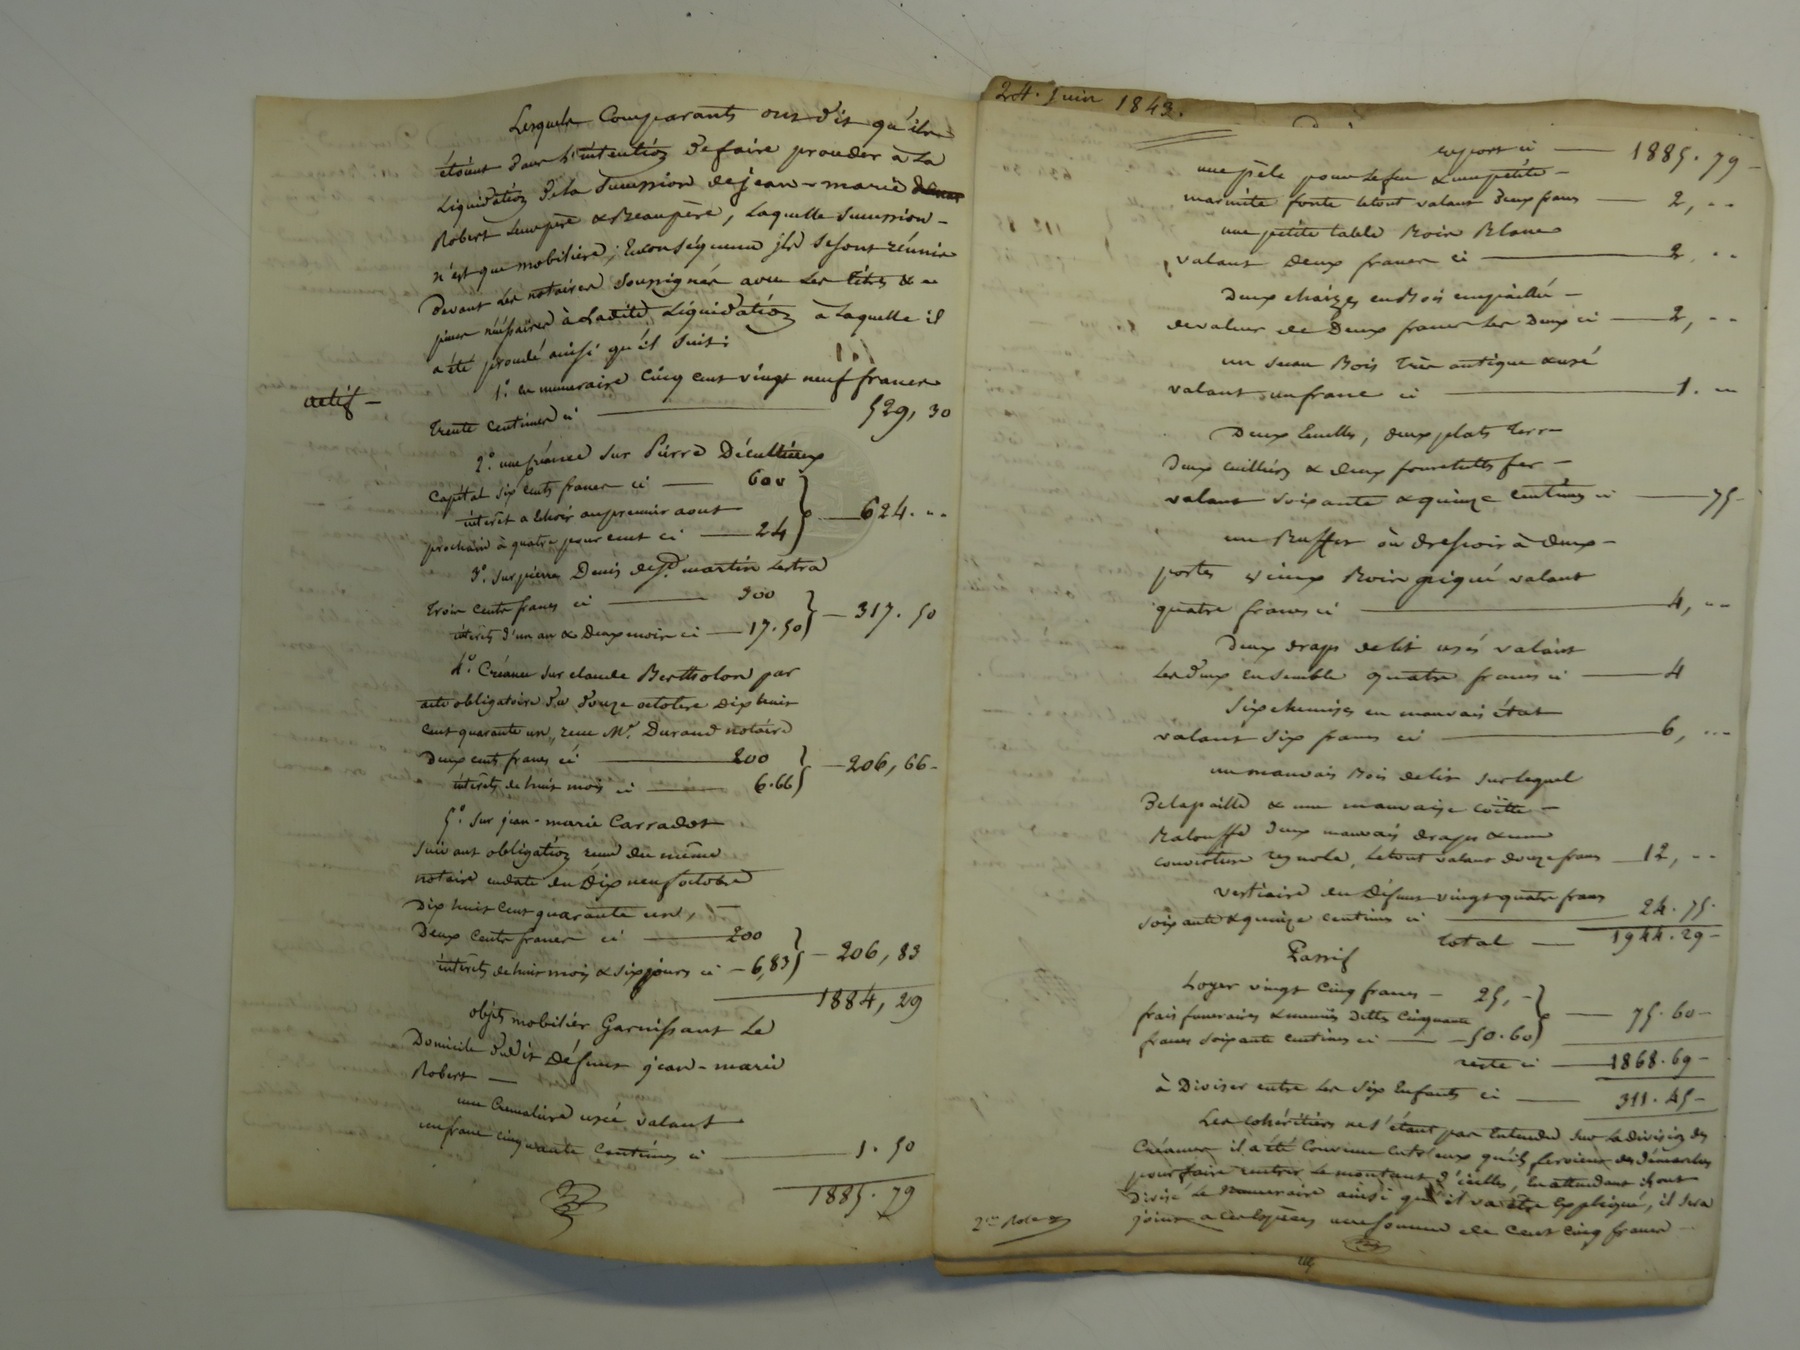 Lesquels Comparants ont dit qu'ils
étoient dans l'intention de faire proceder à La
Liquidation de la Succession de jean-marie
Robert Leur père & Beaupère, Laquelle Succession
n'est que mobiliere; En conséquence ils se sont réunis
Devant Les notaires Soussignés avec Les titres &
pieces nécéssaires à Ladite Liquidation a Laquelle il
a été procedé ainsi qu'il suit:
actif -
1° en numeraire Cinq cent vingt neuf francs
trente centimes ci 529, 30
2° une créance sur Pierre Décultieux
capital six cents francs ci 600
intérêt a Echoir au premier aout
prochain à quatre pour cent ci 24 624. "
3° Sur pierre Denis de St martin Lestra
trois cents francs ci 300
intérêts d'un an & Deux mois ci 17.50 317. 50
4° Créance sur claude Bertholon par
acte obligatoire du Douze octobre Dix huit
cent quarante un, reçu Me Durand notaire
Deux cents francs ci 200
intérêts de huit mois ci 6.66 206, 66
5° Sur jean-marie Carradot
Suivant obligation reçue du même
notaire en date du Dix neuf octobre
Dix huit cent quarante un,
Deux cents francs ci 200
intérêts de huit mois & six jours ci 6,83 206, 83
1884, 29
objets mobilier Garnissant Le
Domicile dudit Défunt jean-marie
Robert
une Cremaliere usée valant
un franc cinquante Centimes ci 1. 50
1885. 79
24. Juin 1843.
report ci 1885. 79
une pèle pour le feu & une petite
marmite fonte le tout valant Deux francs 2, "
une petite table Bois Blanc
valant Deux francs ci 2 "
Deux chaizes en Bois empaillé
de valeur de Deux francs Les Deux ci 2, "
un seau Bois très antique & usé
valant un franc ci 1. "
Deux Ecuelles, deux plats terre
Deux cuilliers & deux fourchettes fer
valant soixante & quinze centimes ci 75
un Buffet ou dressoir à deux
portes vieux Bois piqué valant
quatre francs ci 4, "
Deux draps de lit usés valant
Les Deux Ensemble quatre francs ci 4
Six chemises en mauvais état
valant six francs ci 6, "
un mauvais Bois de lit sur lequel
De la paille & une mauvaise coitte
Balouffe Deux mauvais draps & une
couverture Le tout valant douze francs 12, "
vestiaire du Défunt vingt quatre francs
soixante & quinze centimes ci 24. 75
total 1944. 29
Passif
Loyer vingt cinq francs 25,
frais funeraires & menues Dettes Cinquante
francs soixante centimes ci 50.60 75. 60
reste ci 1868. 69
à Diviser entre Les Six Enfants ci 311. 45
Les cohéritiers ne s'étant pas Entendu sur La division des
Créances il a été Convenu entr'eux qu'ils feroient des démarches
pour faire rentrer Le montant d'icelles, En attendant ils ont
Divisé Le Numeraire ainsi qu'il va être Expliqué, il sera
joint a ces Espèces une somme de cent cinq francs
2me Role